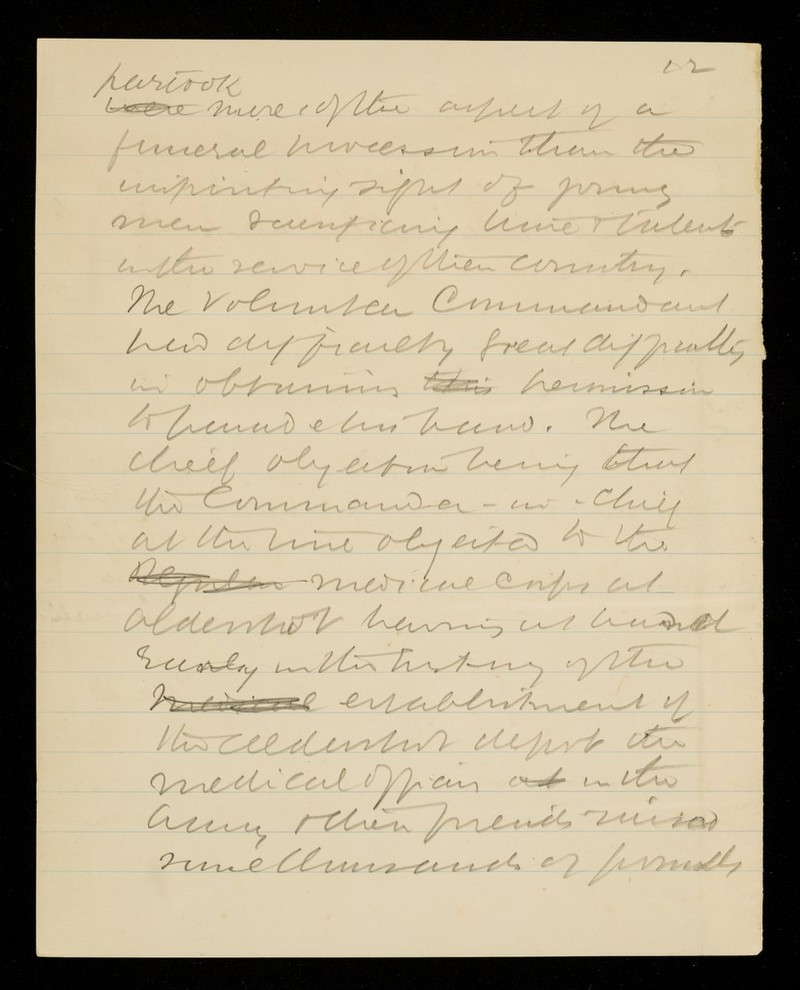 12
partook
were more of the aspect of a
funeral procession than the
inspiriting sight of young
men sacrificing time & talent
in the service of their country.
The Volunteer Commandant
had difficulty great difficulty
in obtaining this permission
to parade his band. The
chief objection being that
the Commander-in-Chief
at the time objected to the
Regular medical corps at
Aldershot having a band
Early in the history of the
medical establishment of
the Aldershot depot the
medical officers at in the
Army & their friends raised
some thousands of pounds